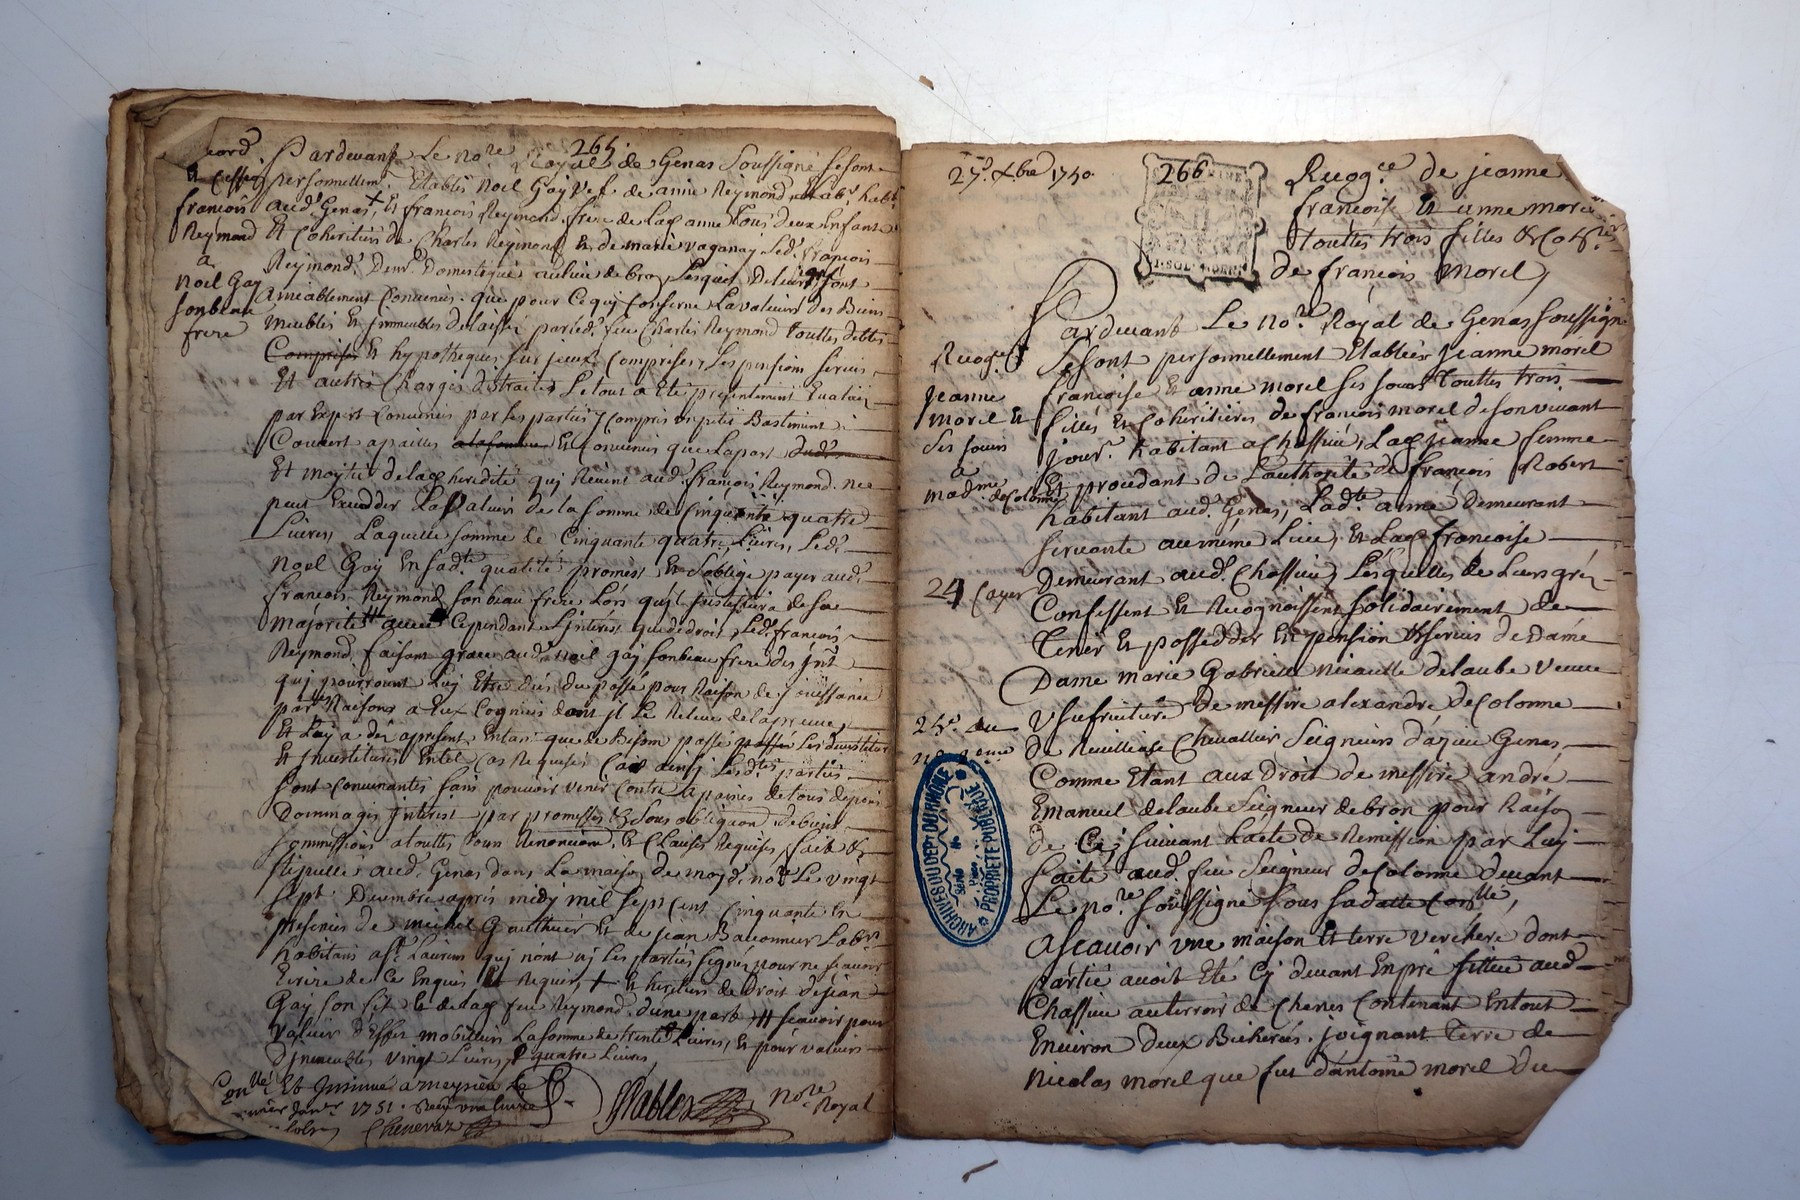 265
Pardevant Le no.re Royal de Genas Soussigné Se sont
personnellem.t Etablis noel Gay vef. de anne Reymond lab.r hab.t
aud. Genas + & françois Reymond frere de lad. anne tous deux Enfants
Et Coheritiers de Charles Reymond & de marie vaganay led. françois
Reymond Dem.t Domestique au lieu de bron Lesquels De leur gré sont
amiablement Convenus que pour Ce quj Conserne La valeur des Biens
meubles & Jmmeubles delaissés par led. feu Charles Reymond touttes debtes
Comprises & hypotheques sur jceux Comprises, Les pensions servis
Et autres Charges distraites Le tout a Eté presentement Evalué
par Expert Convenus par les parties y Compris un petit Bastiment
Couvert a pailles & Convenus que La part
Et moytié de lad. heredité quj Revient aud. françois Reymond ne
peut Exceder La Valeur de la somme de Cinquante quatre
Livres, Laquelle somme de Cinquante quatre Livres, Led.
Noel Gay En sad.te qualité promest & s'oblige payer aud.
françois Reymond son beau frere Lors quj'l justiffiera de sa
majorité avec Cependant L'jnterest que de droit, Led. françois
Reymond faisant grace aud. noel gay son beau frere des jnt.
quj pourroient Luy Etre dûs du passé pour Raison de Joüissance
par Raisons a Eux Cognues dont jl Le Releve de la preuve
Et Luy a dès apresent Entant que de Besoin passé passé Les devestiture
Et jnvestiture En tel Cas Requises Car ainsy Lesd.tes parties
sont Convenantes sans pouvoir venir Contre a paines de tous depens
Dommages jnterest par promesses & sous obligaon de biens
sommissions a touttes Cours Renonciaon. & Clauses Requises, fait &
stipullé aud. Genas dans La maison de moyd. no.re Le vingt
sept Decembre après midy mil sept Cent Cinquante En
presences de michel Gauthier & de jean Baconnier Lab.rs
habitans quj n'ont nj les parties signés pour ne sçavoir
Ecrire de Ce Enquis & Requis, + & heritier de Droit de jean
Gay son fils & de lad. feu Reymond d'une part, # sçavoir pour
valeur d'Effes mobilliers La somme de trente Livres, & pour valeur
d'jmmeubles vingt quatre Livres,
Con.llé Et Jnsinué a meysieu Le
janv.r 1751. Reçu
Chenevaz
no.re Royal
& Cession
françois
Reymond
a
Noel Gay
son beau
frere
27. Xbre 1750.
266
Recog.ce de jeanne
françoise & anne morel
touttes trois filles & Coh.res
de françois Morel
Pardevant Le no.re Royal de Genas soussigné
Se sont personnellement Etablies Jeanne morel
françoise & anne morel ses sœurs touttes trois
filles & Coheritieres de françois morel de son vivant
jour.r habitant a Chassieu, Lad. jeanne femme
Et procedant de L'authorité de françois Robert
habitant aud. Genas, Lad.te anne demeurant
servante au même Lieu, & Lad. françoise
demeurant aud. Chassieu, Lesquelles de Leurs gréz
Confessent & Recognoissent solidairement de
Tenir & possedder En pension & servis de Damé
Dame marie Gabrielle de laube veuve
Usufruituere de messire alexandre de Colonne
de Chevallier Seigneur d'ajeu Genas
Comme Etant aux Droit de messire andré
Emanuel de laube Seigneur de bron pour Raison
de Ce, suivant L'acte de Remission par Luy
faite aud. feu Seigneur de Colonne devant
Le no.re soussigné sous sa datte Con.llé,
Ascavoir une maison & terre verchere dont
partie avoit Eté Cy devant En pré sittuée aud.
Chassieu au terroir de Chenes Contenant En tout
Environ deux Bicherées joignant Terre de
Nicolas Morel que fut d'antoine morel du
Recog.ce
jeanne
morel &
ses sœurs
a
madme de Colonne
24 Cayer
25.e du
ARCHIVES DU DEPT DU RHONE
PROPRIETE PUBLIQUE